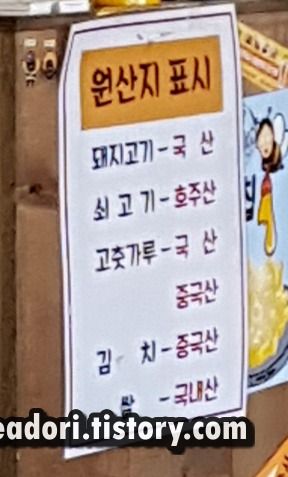 원산지 표시
돼지고기-국 산
쇠 고 기-호주산
고춧가루-국 산
중국산
김 치-중국산
쌀 -국내산
eadori.tistory.com